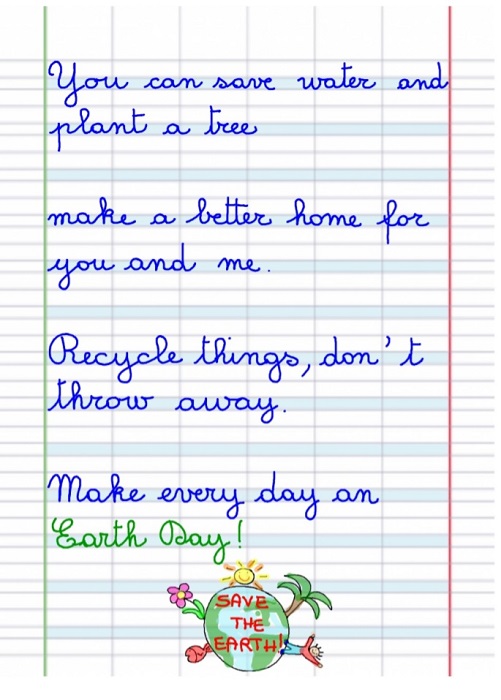 You can save water and
plant a tree
make a better home for
you and me.
Recycle things, don't
throw away.
Make every day an
Earth Day!
SAVE
THE
EARTH!